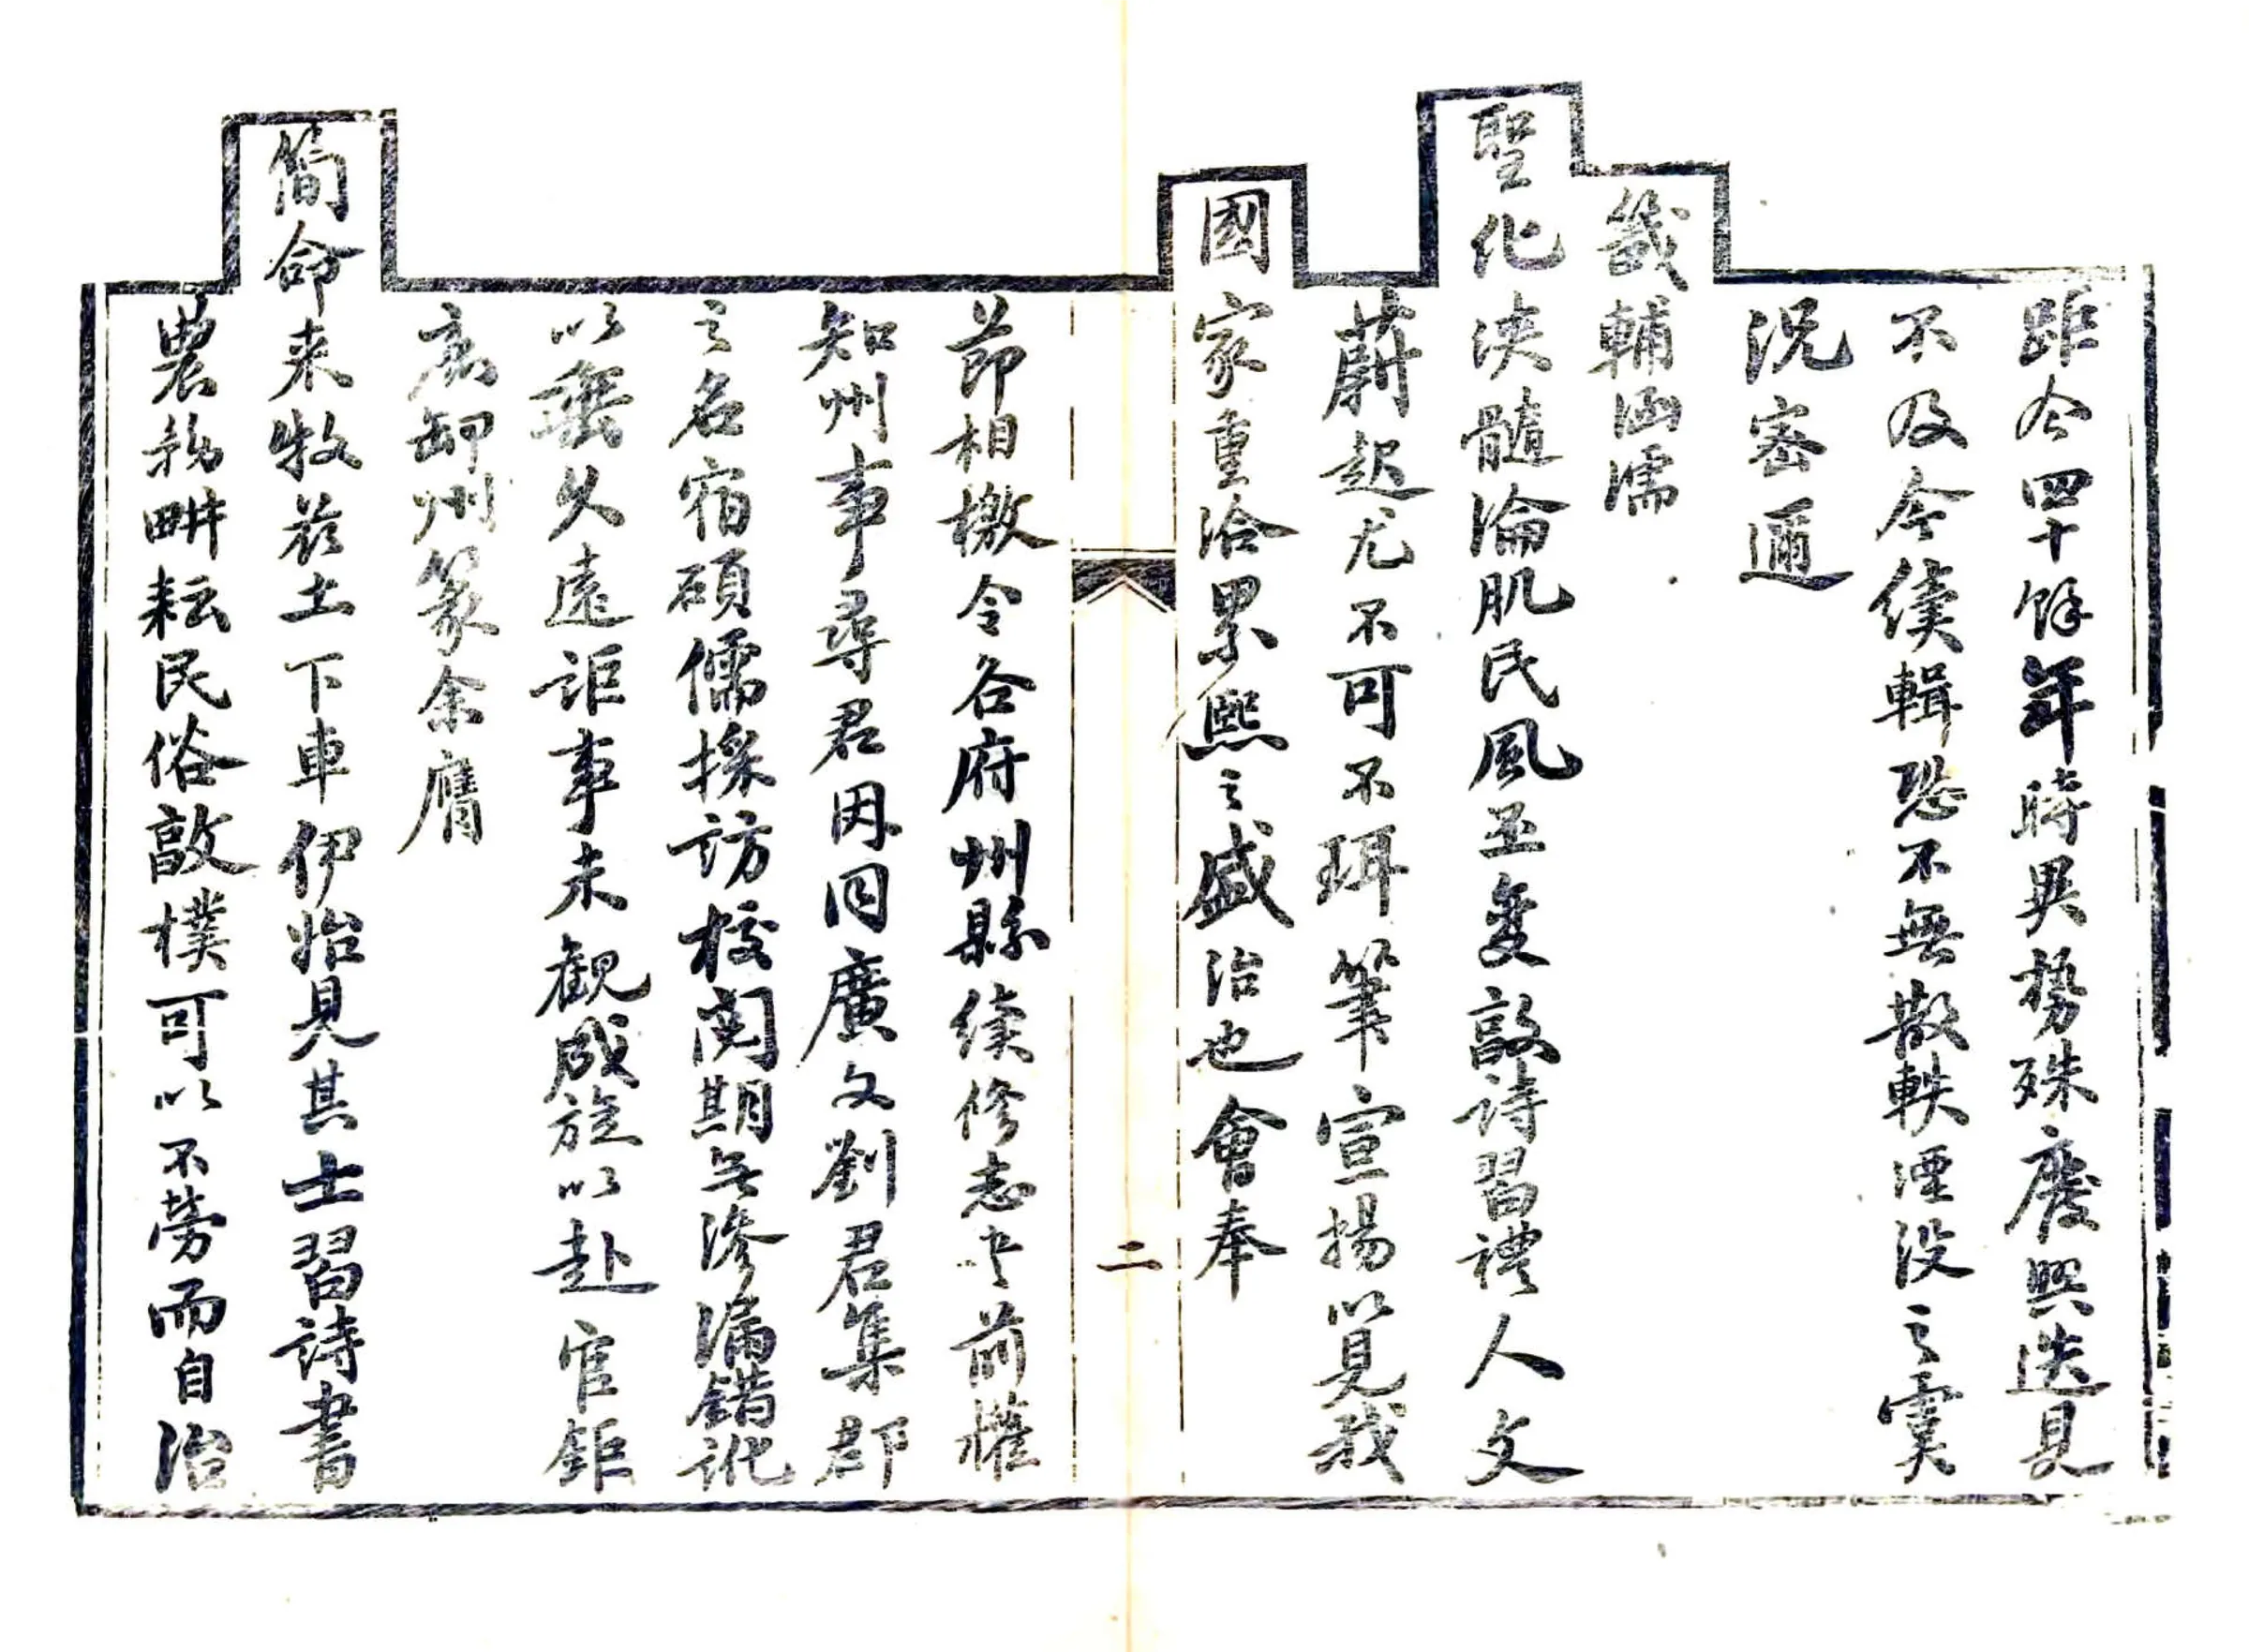 距今四十餘年時異勢殊廢興迭見
不及今續輯恐不無散軼湮没之虞
況密邇
畿輔涵濡
聖化浹髓淪肌民風丕變敦詩習禮人文
蔚起尤不可不珥筆宣揚以見我
國家重洽累熙之盛治也會奉
二
節相檄令各府州縣續修志乘前權
知州事尋君因同廣文劉君集郡
之名宿碩儒採訪校閱期無滲漏錯訛
以垂久遠詎事未觀成旋以赴官鉅
鹿卸州篆余膺
簡命来牧兹土下車伊始見其士習詩書
農務畊耘民俗敦樸可以不勞而自治